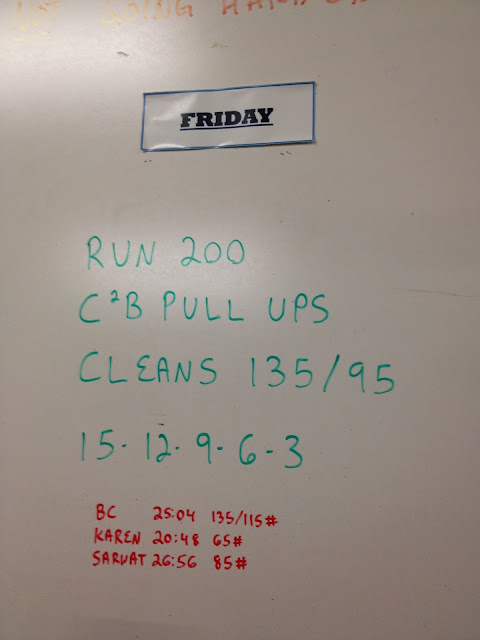 GOING
FRIDAY
RUN 200
C²B PULL UPS
CLEANS 135/95
15-12-9-6-3
BC 25:04 135/115#
KAREN 20:48 65#
SARWAT 26:56 85#